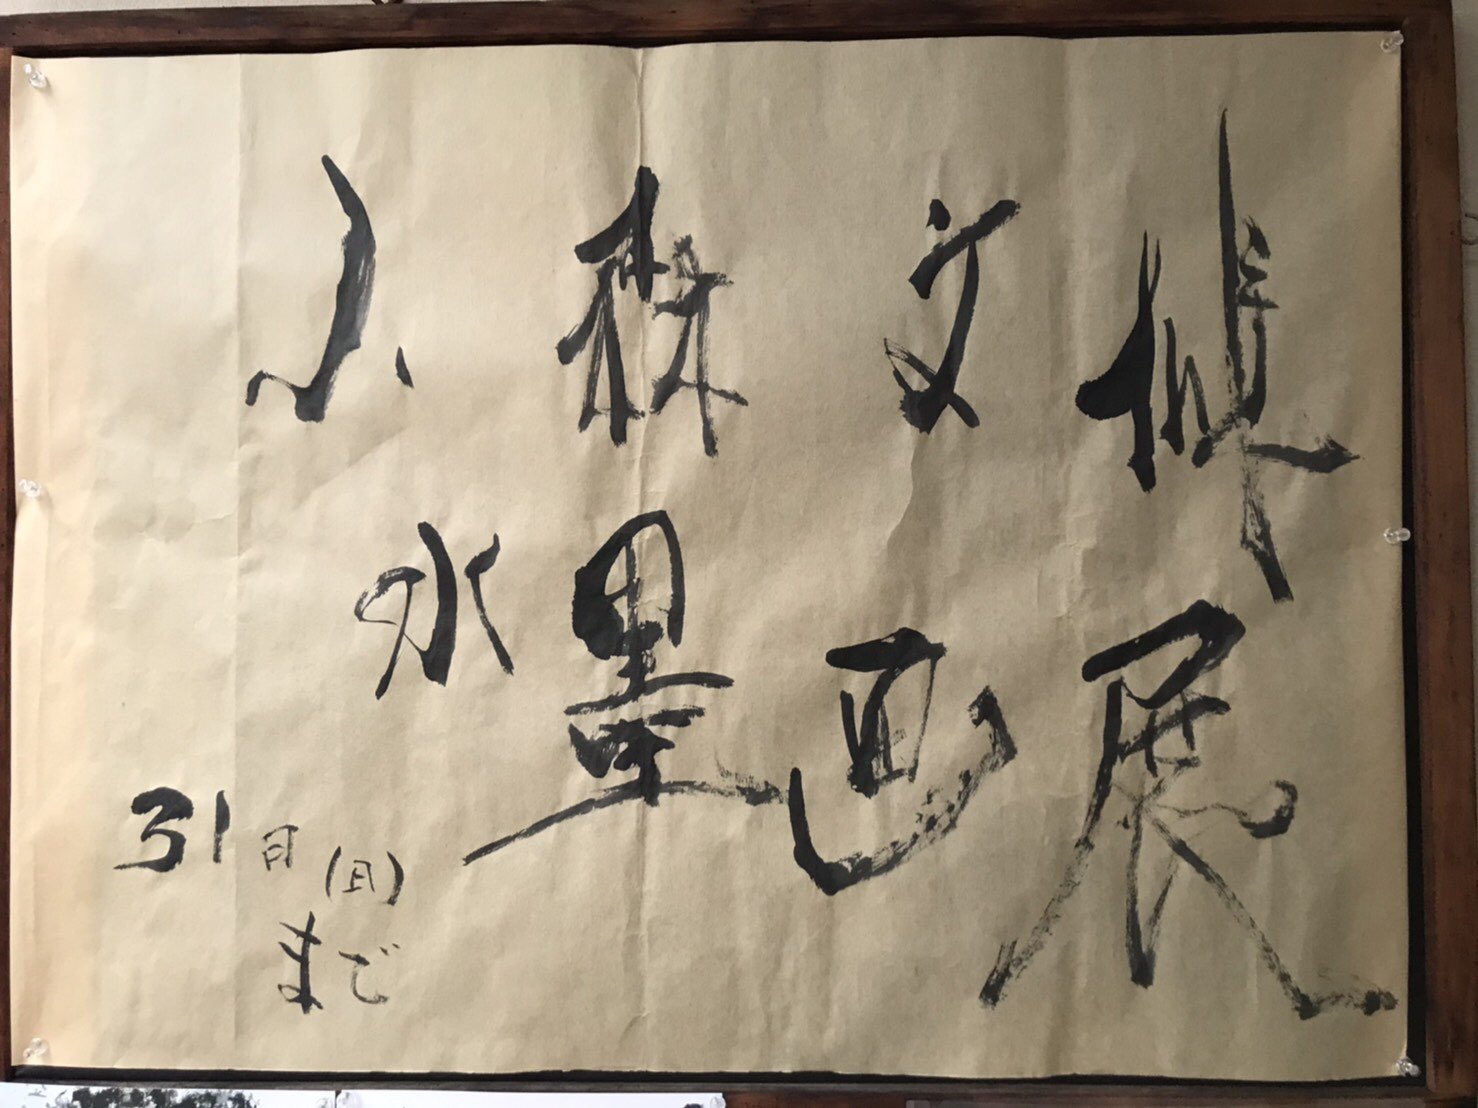 小林文
水墨画展
31日(日)
まで